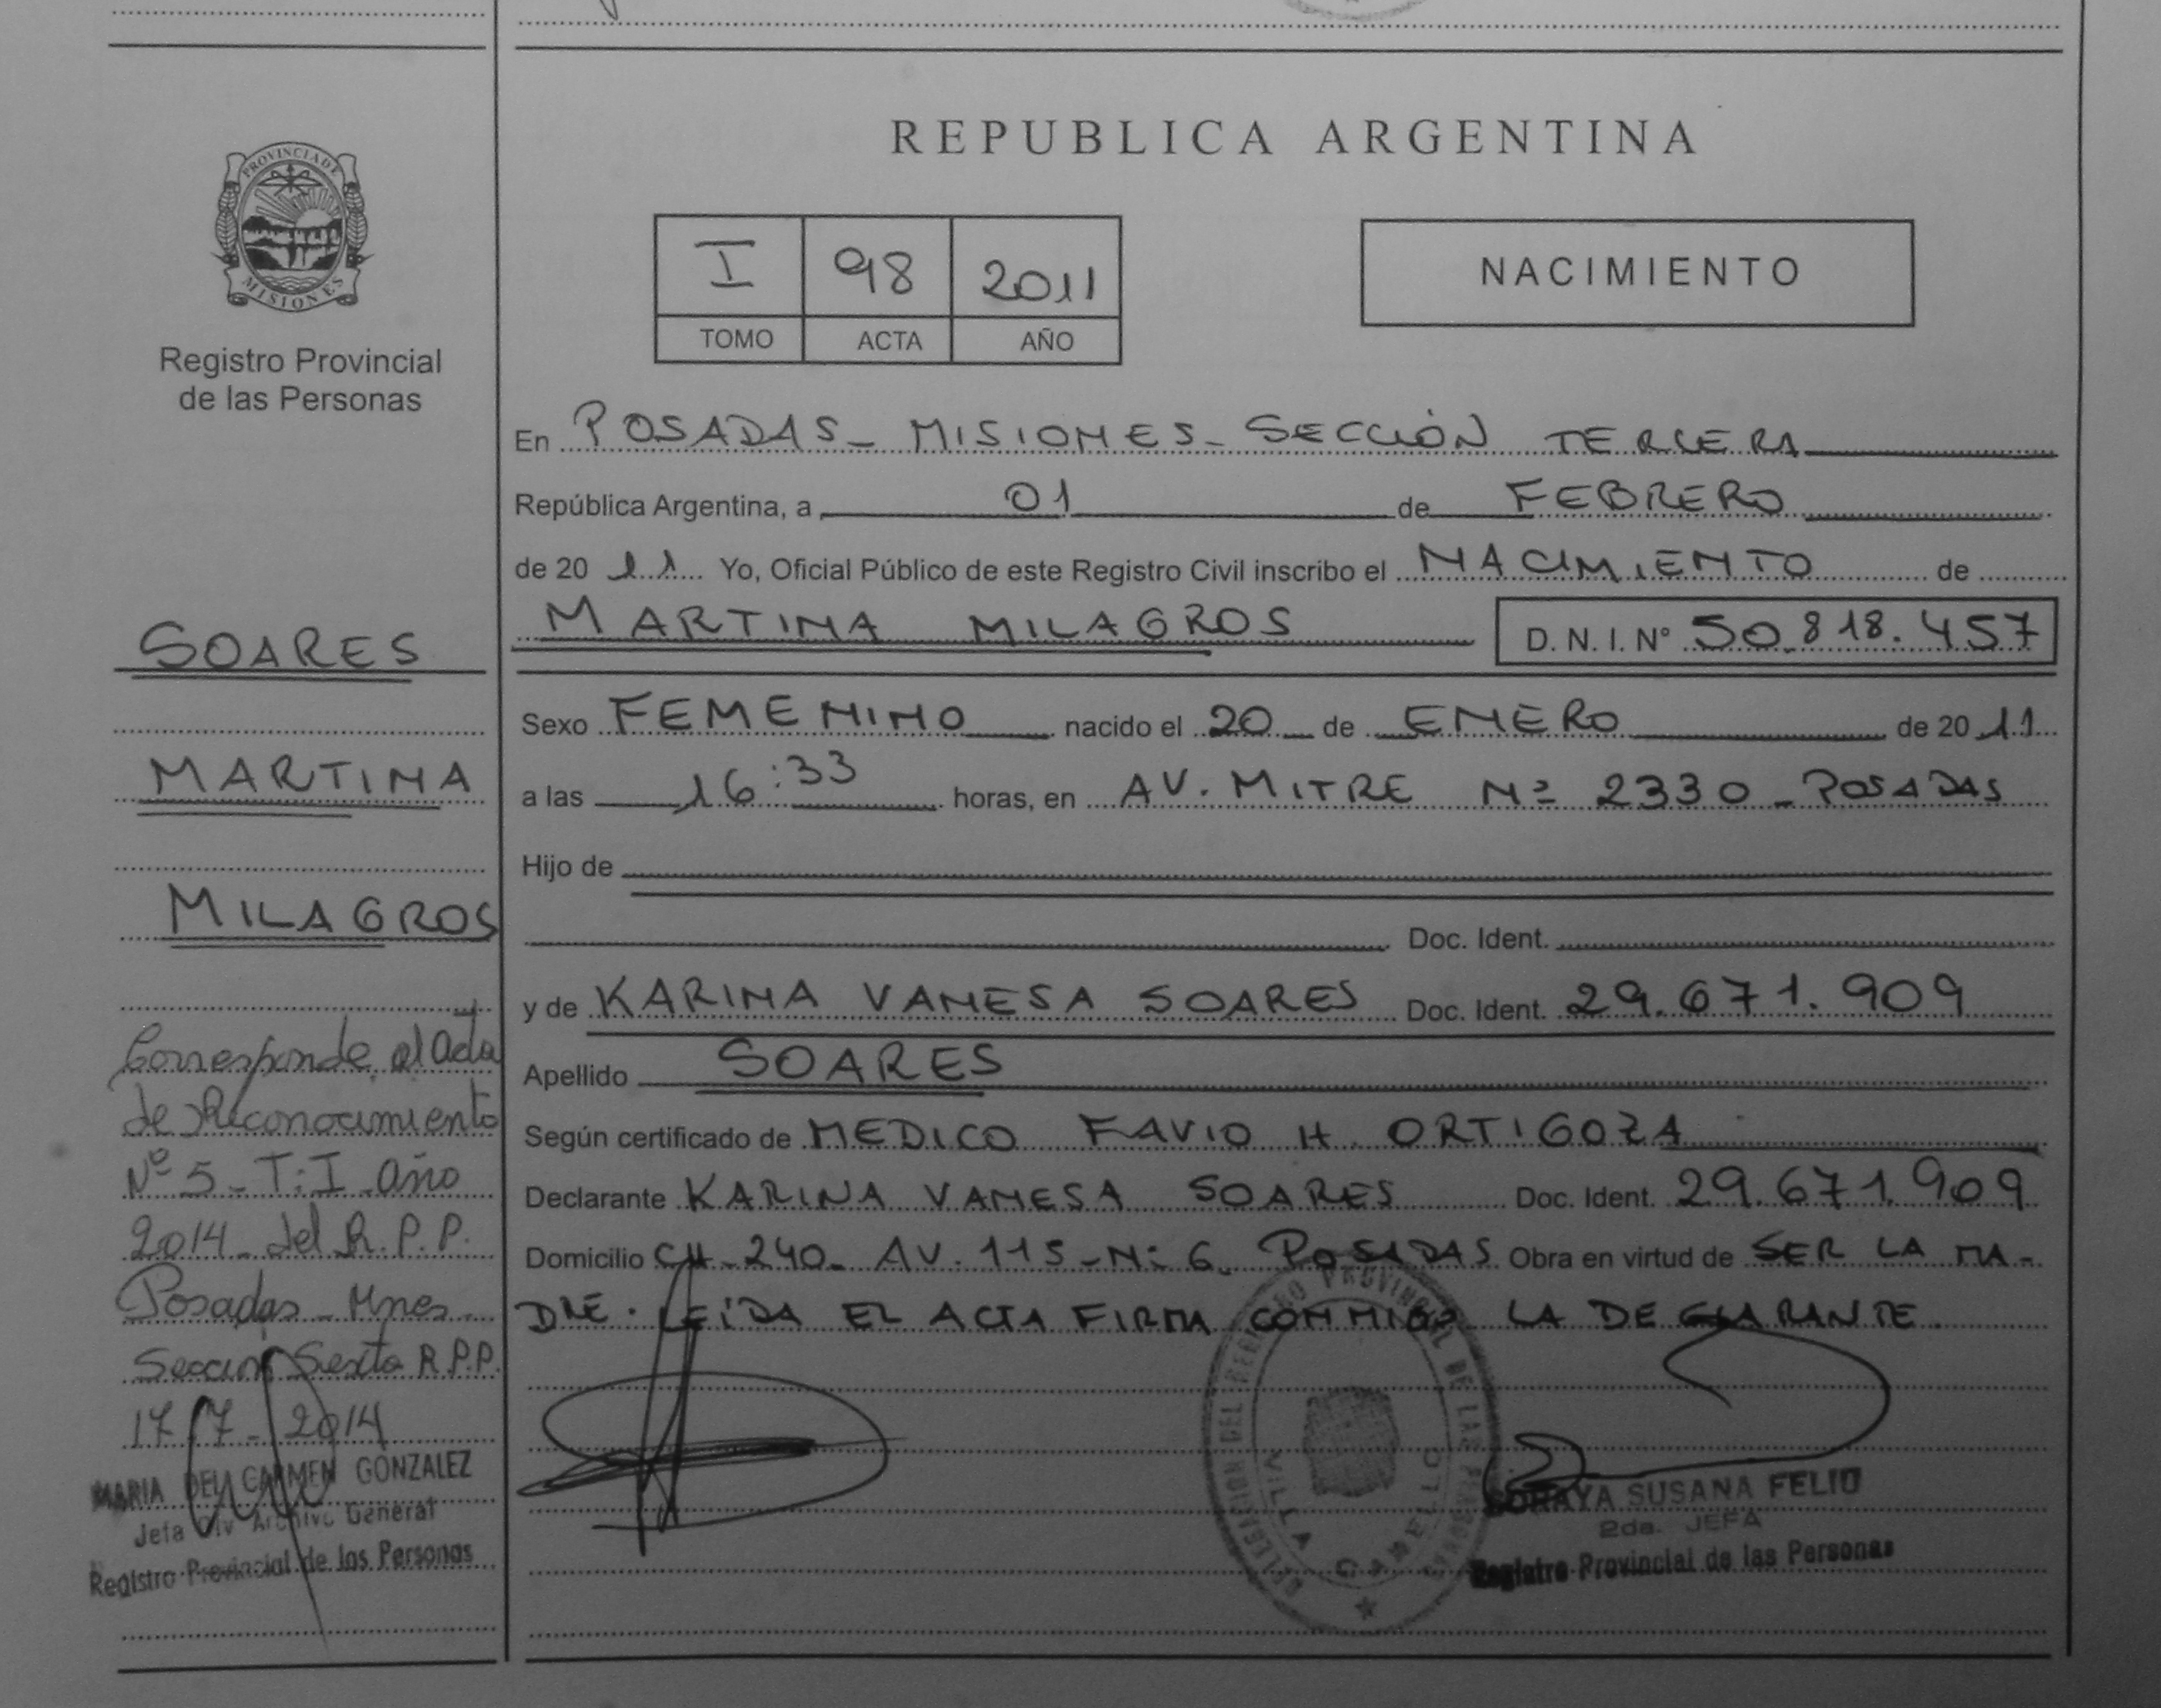 PROVINCIA DE
MISIONES
Registro Provincial
de las Personas
SOARES
MARTINA
MILAGROS
Corresponde al Acta
de Reconocimiento
Nº 5 - T: I Año
2014 - del R.P.P.
Posadas - Mnes -
Sección Sexta R.P.P.
17/7 - 2014
MARIA DEL CARMEN GONZALEZ
Jefa Div Archivo General
Registro Provincial de las Personas
REPUBLICA ARGENTINA
I 98 2011
TOMO ACTA AÑO
NACIMIENTO
En POSADAS - MISIONES - SECCIÓN TERCERA
República Argentina, a 01 de FEBRERO
de 20 11 Yo, Oficial Público de este Registro Civil inscribo el NACIMIENTO de
MARTINA MILAGROS D. N. I. Nº 50.818.457
Sexo FEMENINO nacido el 20 de ENERO de 20 11
a las 16:33 horas, en AV. MITRE Nº 2330 - POSADAS
Hijo de
Doc. Ident.
y de KARINA VANESA SOARES Doc. Ident. 29.671.909
Apellido SOARES
Según certificado de MEDICO FAVIO H. ORTIGOZA
Declarante KARINA VANESA SOARES Doc. Ident. 29.671.909
Domicilio CH - 240 - AV. 115 - N: 6 - POSADAS Obra en virtud de SER LA MA-
DRE. LEÍDA EL ACTA FIRMA CONMIGO LA DECLARANTE
DELEGACION DEL REGISTRO PROVINCIAL DE LAS PERSONAS
VILLA CABELLO
SORAYA SUSANA FELIU
2da. JEFA
Registro Provincial de las Personas